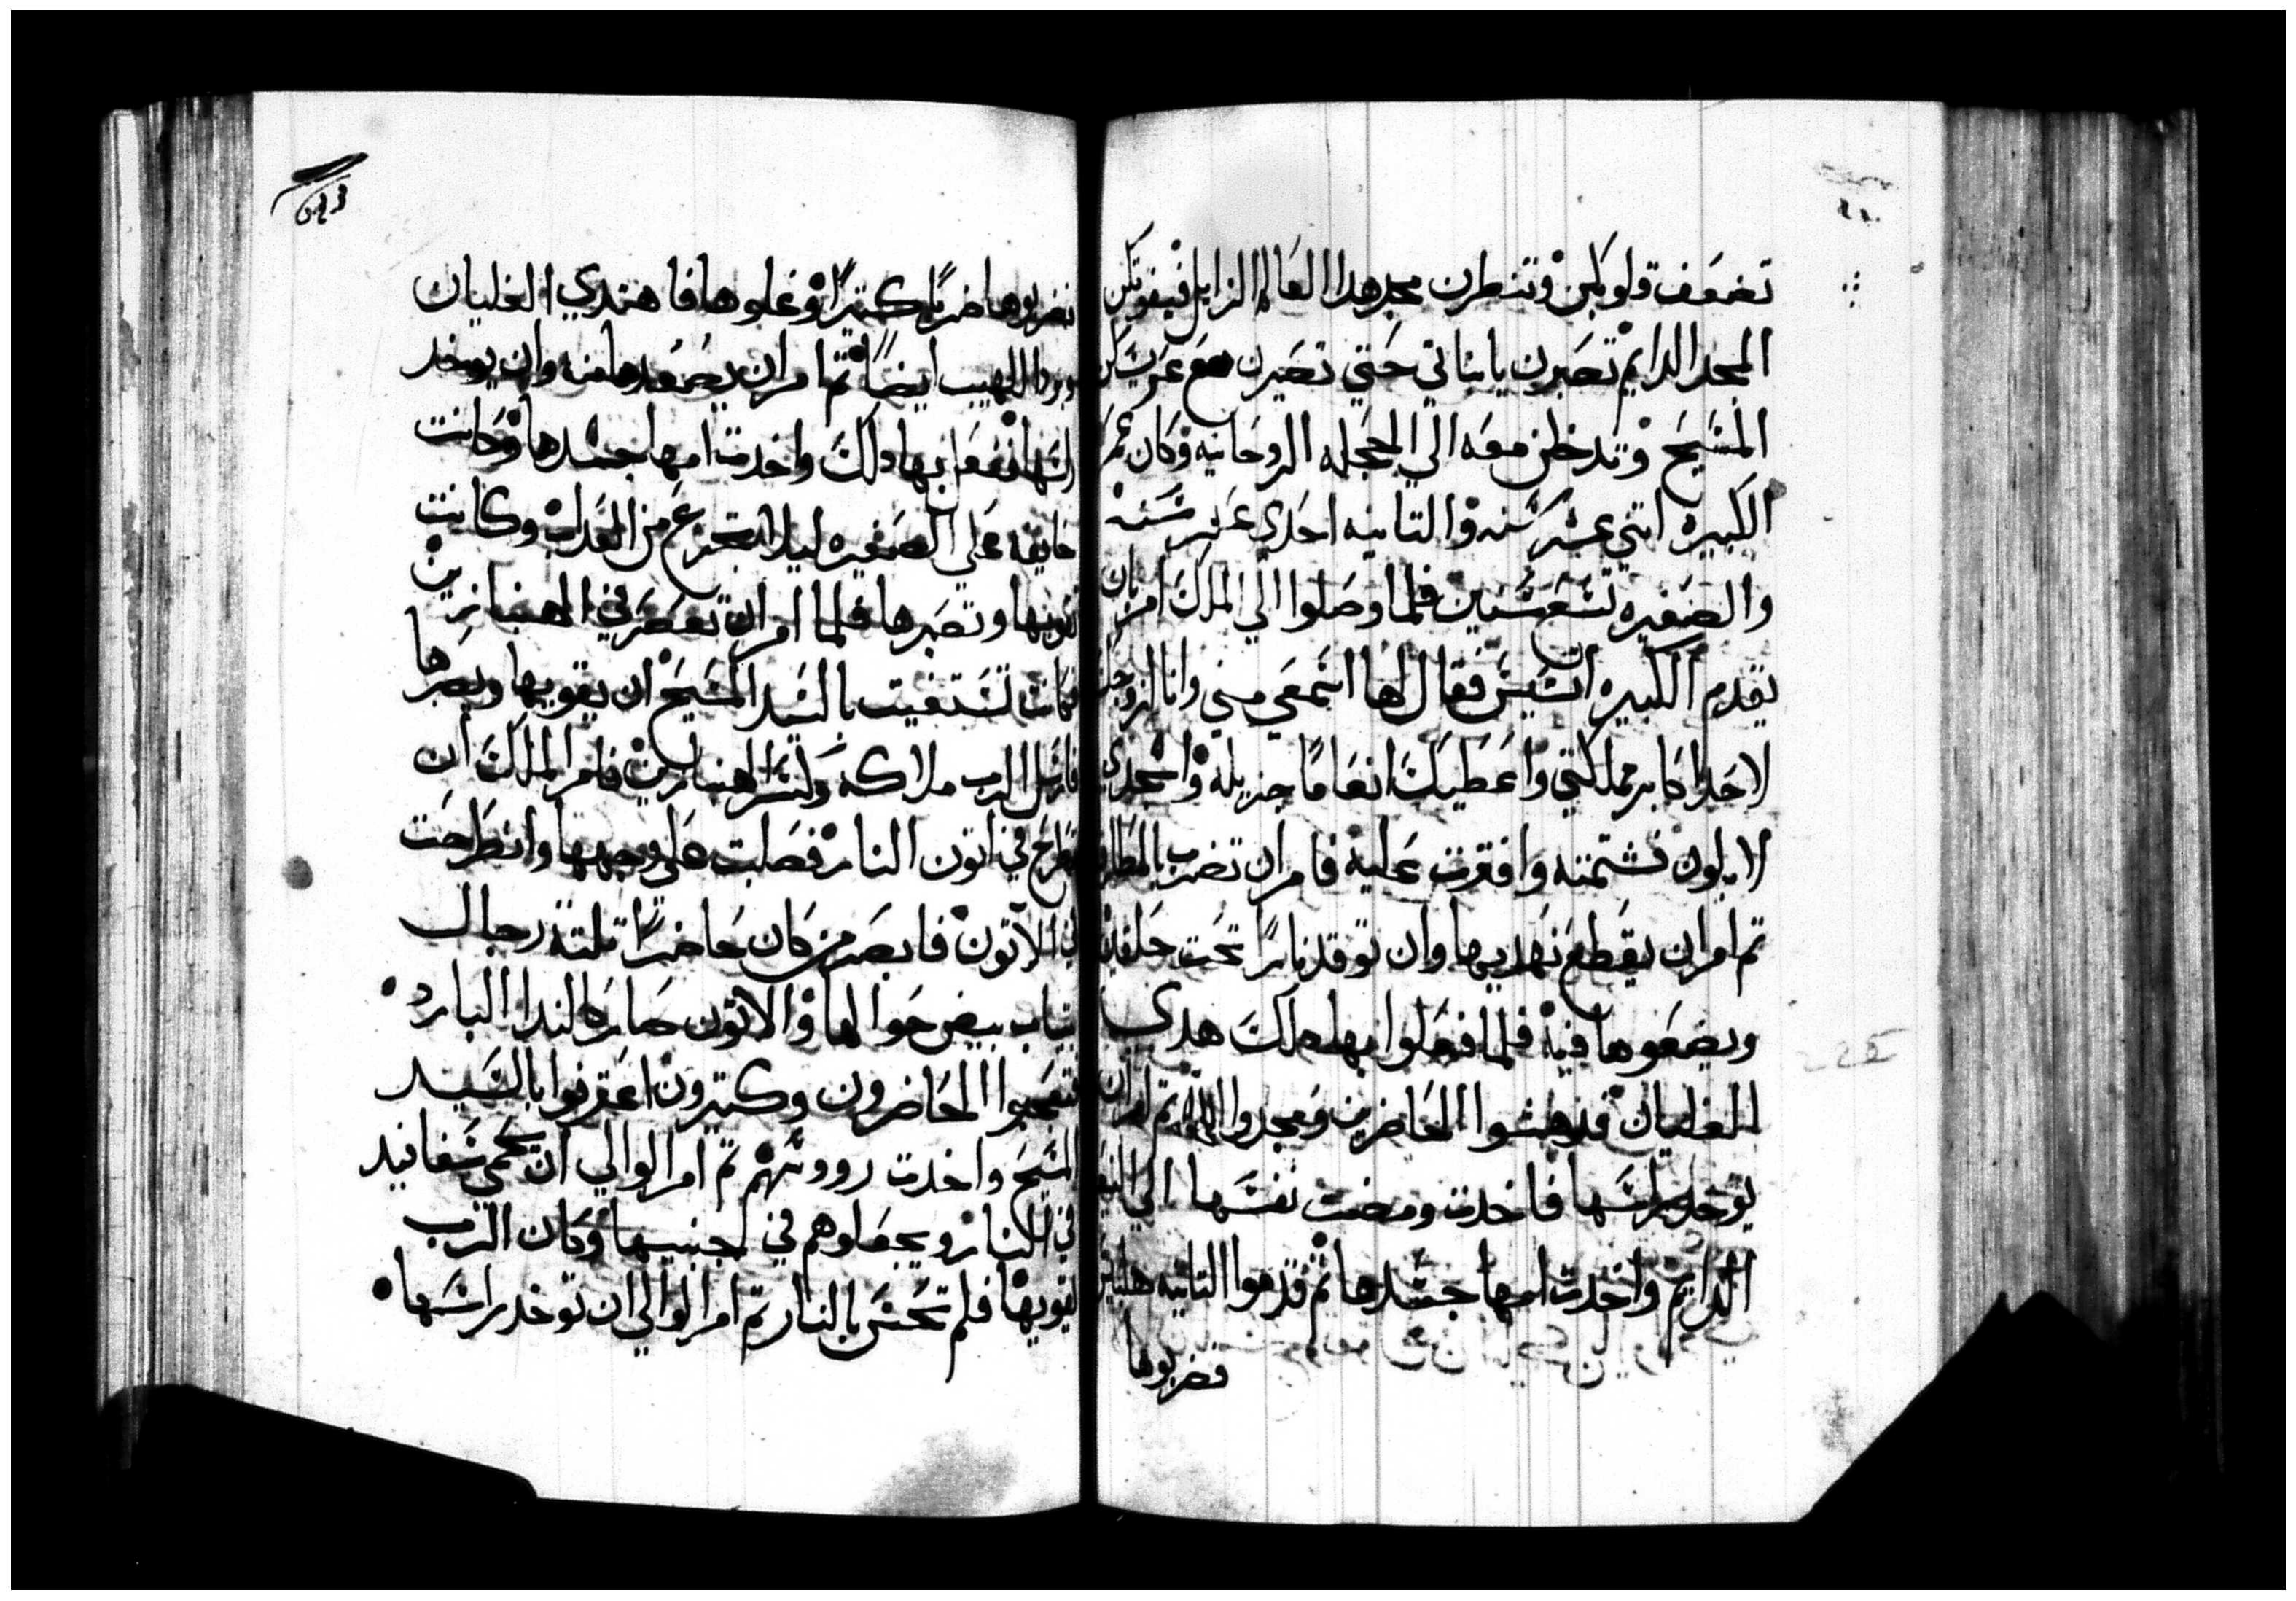 تضعف قلوبكن وتنظرن مجد هدا العالم الزايل فيفوتكن
المجد الدايم تصبرن يابناتي حتي تصيرن مع عريسكن
المسيح وتدخلن معه الي الحجله الروحانيه وكان عمر
الكبيره اتني عشر سنه والتانيه احدي عشر سنه
والصغيره تسع سنين فلما وصلوا الي الملك امر بان
يقدم الكبيره ابيستس فقال لها اسمعي مني وانا ازوجك
لاحد اكابر مملكتي واعطيك انعاما جزيله واسجدي
لابلون فشتمته وافترت عليه فامر ان تضرب بالمطارق
تم امر ان يقطع نهديها وان توقد نارا تحت حلقين
ويضعوها فيه فلما فعلوا بها دلك هدي
الغليان فدهشوا الحاضرين ومجدوا الله تم امر ان
يوخد براسها فاخدت ومضت نفسها الي النعيم
الدايم واخدت امها جسدها تم قدموا التانيه
فضربوها
فضربوها ضربا كتيرا وغلوها فاهتدي الغليان
وبردا اللهيب ايضا تم امر ان يصعدها منه وان يوخد
راسها ففعل بها دلك واخدت امها جسدها وكانت
خايفه علي الصغيره ليلا تجزع من العداب وكانت
تقويها وتصبرها فلما امر ان تعصر في الهنبازين
فكانت تستغيت بالسيد المسيح ان يقويها ويصبرها
فارسل الرب ملاكه وكسر الهنبازين فامر الملك ان
تطرح في اتون النار فصلبت علي وجهها وانطرحت
في الاتون فابصر من كان حاضرا تلتة رجال
بتياب بيض حوالها والاتون صار كالندا البارد
فتعجبوا الحاضرون وكتيرون اعترفوا بالسيد
المسيح واخدت رووسهم تم امر الوالي ان تحمي سفافيد
في النار ويجعلوهم في اجنبيها وكان الرب
يقويها فلم تحس بالنار تم امر الوالي ان توخد براسها